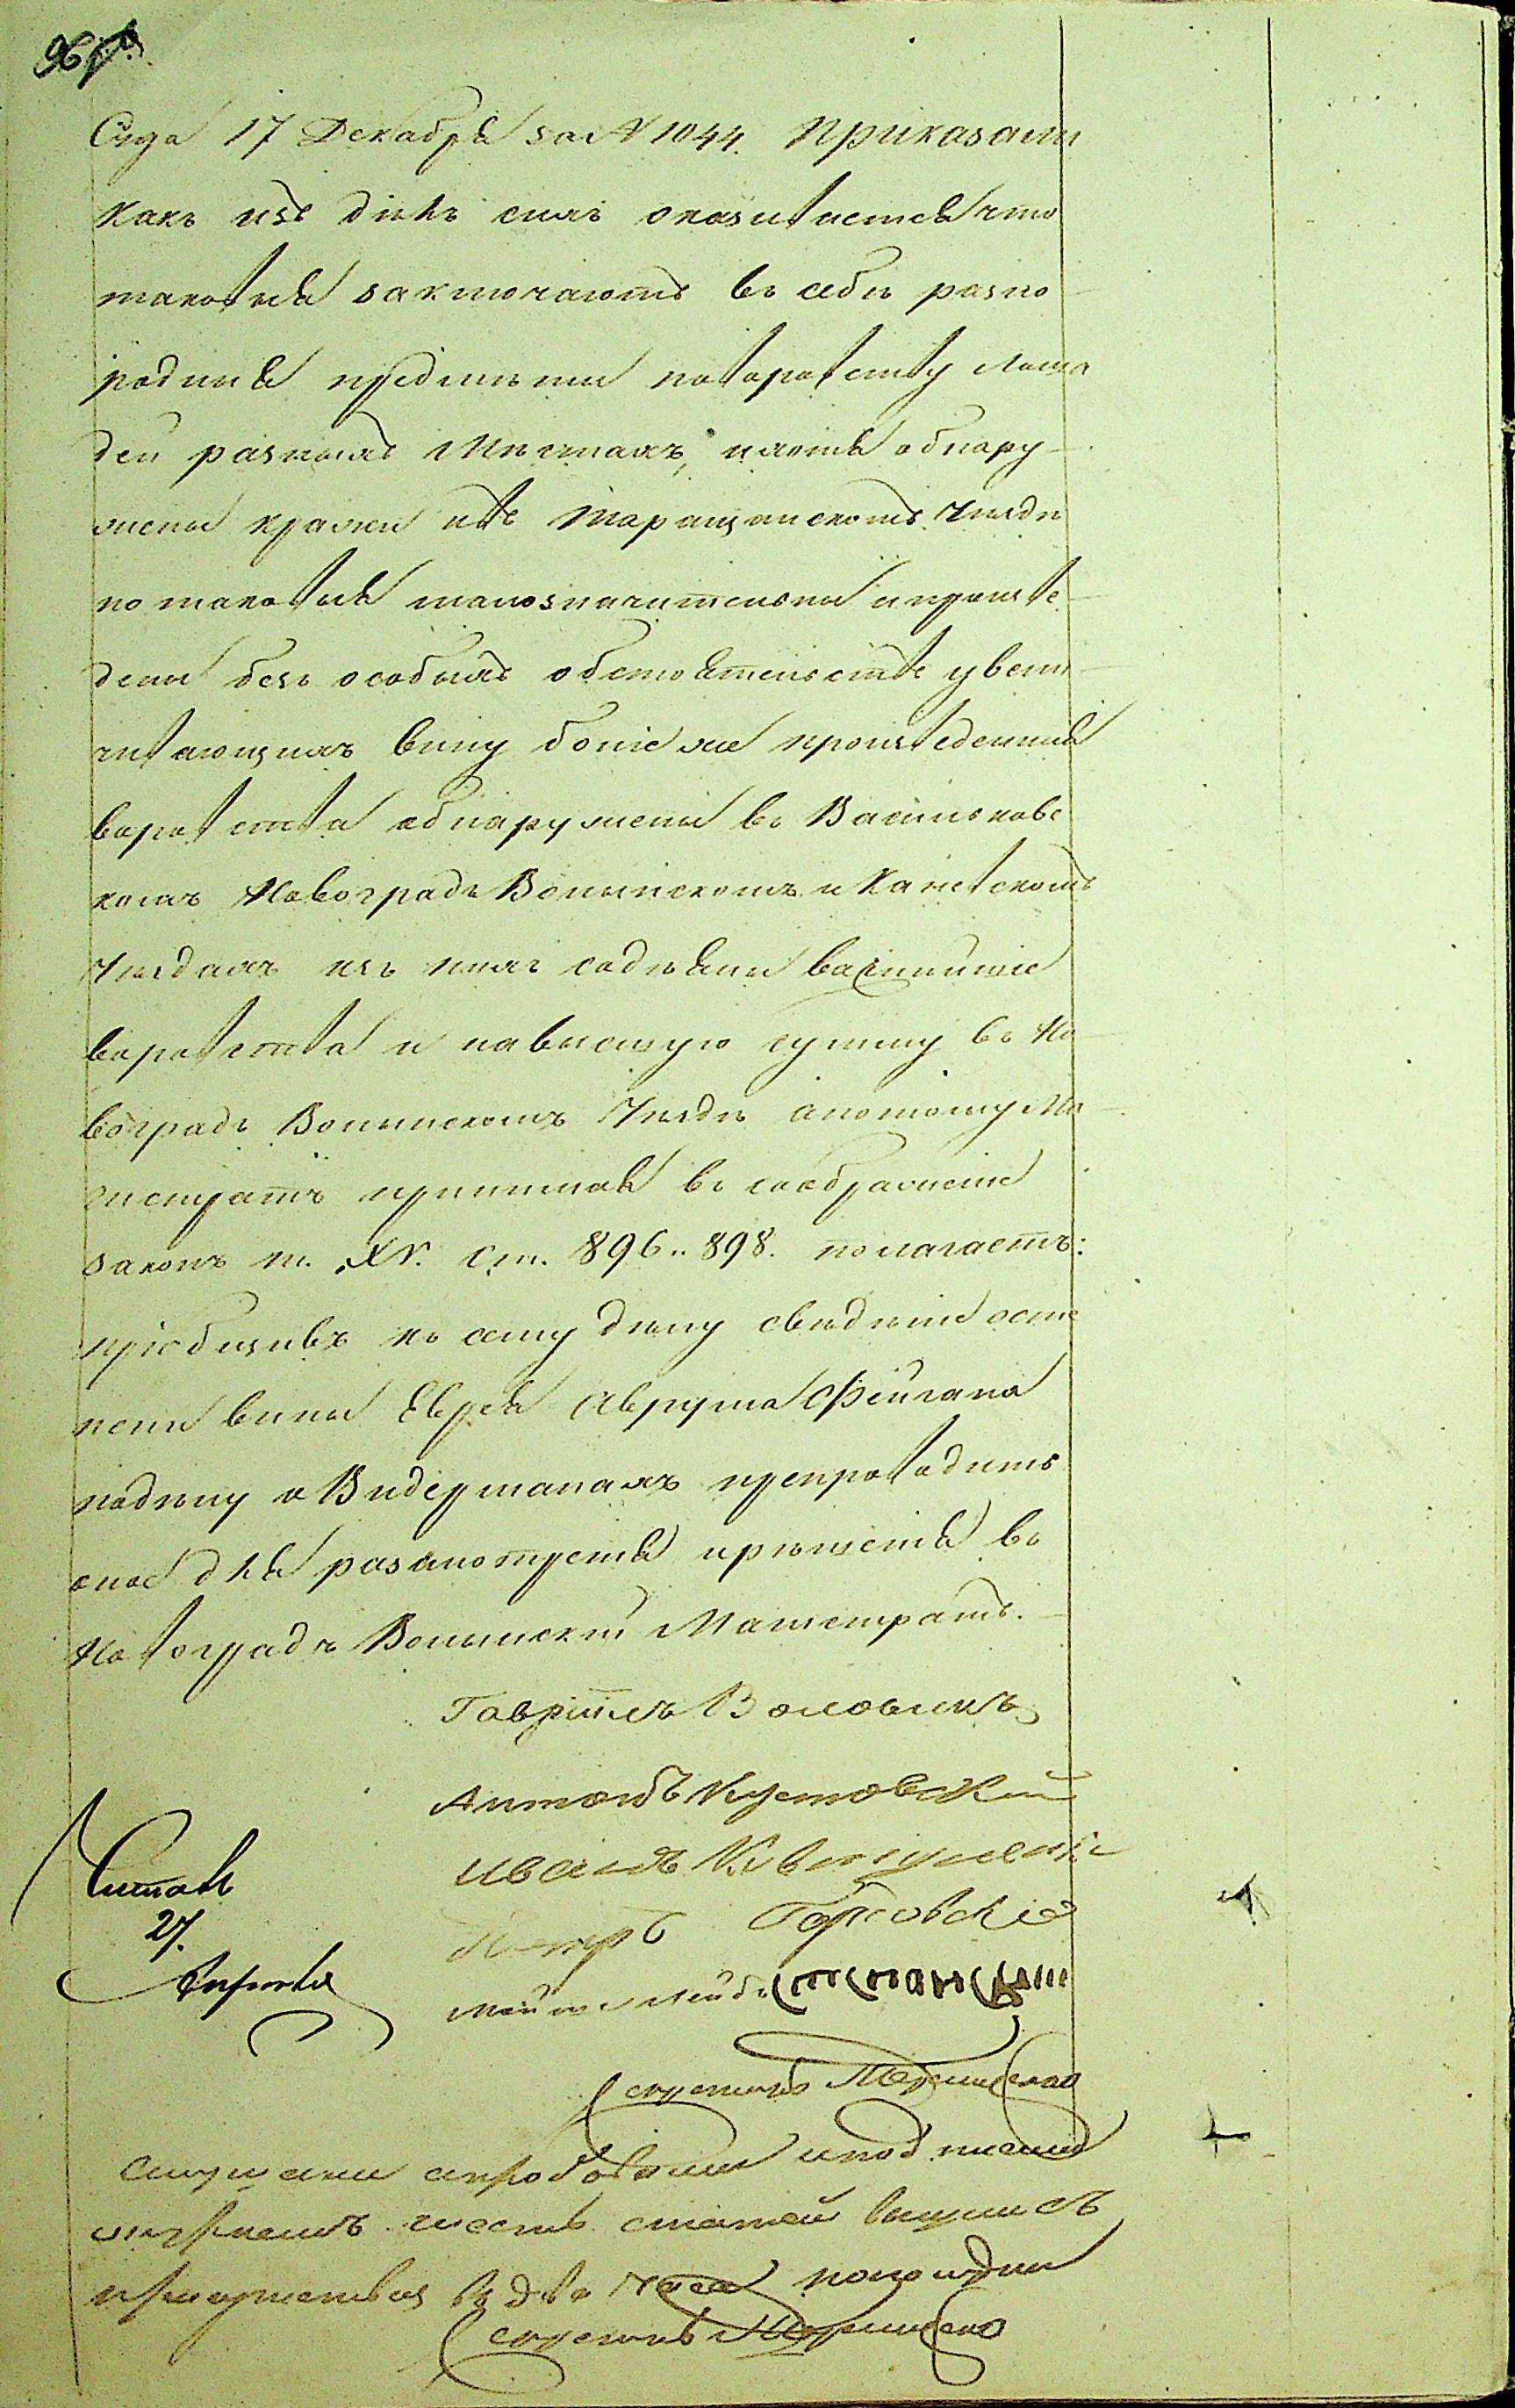 Суда 17 Декабря за N 1044. Приказали
какъ изъ дѣлъ сихъ оказывается что
таковыя заключаютъ въ себѣ разно
родныя предметы по воровству лоша
дей разныхъ Мѣстахъ, хотя обнару
жены кражи и въ Таращанскомъ Уѣздѣ
но таковыя малозначительны и произве
дены безъ особыхъ обстоятельствъ увели
чивающихъ вину болѣе же произведенныя
воровства обнаружены въ Васильковс
комъ Новоградъ Волынскомъ и Каневскомъ
Уѣздахъ изъ нихъ содѣяны важнѣйшіе
воровства и на высшую сумму въ Но
воградъ Волынскомъ Уѣздѣ а потому Ма
гистратъ принимая въ соображеніе
законъ т. XV. Ст. 896 и 898. полагаетъ:
пріобщивъ къ сему дѣлу свѣдѣніе о сте
пени вины Еврея Аврума Фейгана
по дѣлу о Видерманахъ препроводить
оное для разсмотрѣнія и рѣшенія въ
Новоградъ Волынскій Магистратъ.
Гавріилъ Воловикъ
Антонъ Кустовский
Иванъ
Петръ
Лейба
Читалъ
27.
скрѣпилъ
Слушали апробовали и подписали
шесть статей вышли съ
присутствія въ два часа по полудни
скрѣпилъ